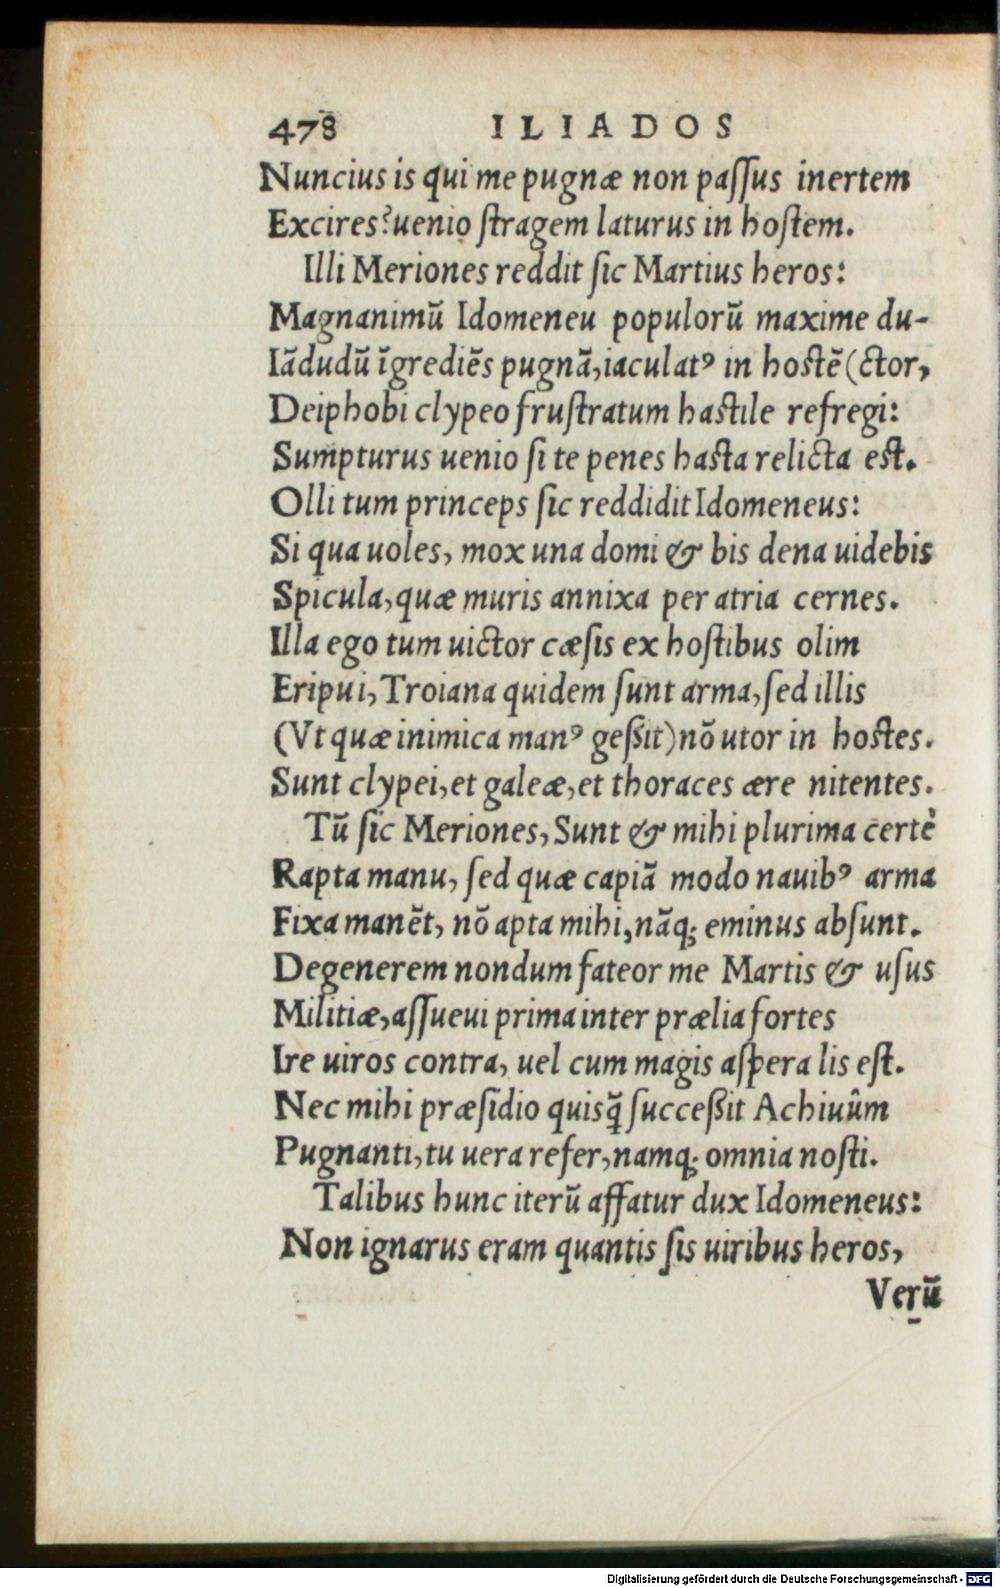 478 ILIADOS
Nuncius is qui me pugnæ non paſſus inertem
Excires? uenio ſtragem laturus in hoſtem.
Illi Meriones reddit ſic Martius heros:
Magnanimū Idomeneu populorū maxime du-
Iādudū īgrediēs pugnā, iaculatꝰ in hoſtē (ctor,
Deiphobi clypeo fruſtratum haſtile refregi:
Sumpturus uenio ſi te penes haſta relicta eſt.
Olli tum princeps ſic reddidit Idomeneus:
Si qua uoles, mox una domi & bis dena uidebis
Spicula, quæ muris annixa per atria cernes.
Illa ego tum uictor cæſis ex hoſtibus olim
Eripui, Troiana quidem ſunt arma, ſed illis
(Vt quæ inimica manꝰ geßit) nō utor in hoſtes.
Sunt clypei, et galeæ, et thoraces ære nitentes.
Tū ſic Meriones, Sunt & mihi plurima certè
Rapta manu, ſed quæ capiā modo nauibꝰ arma
Fixa manēt, nō apta mihi, nāq; eminus abſunt.
Degenerem nondum fateor me Martis & uſus
Militiæ, aſſueui prima inter prælia fortes
Ire uiros contra, uel cum magis aſpera lis eſt.
Nec mihi præſidio quisq̄ ſucceßit Achiuûm
Pugnanti, tu uera refer, namq; omnia noſti.
Talibus hunc iterū affatur dux Idomeneus:
Non ignarus eram quantis ſis uiribus heros,
Verū
Digitalisierung gefördert durch die Deutsche Forschungsgemeinschaft - DFG